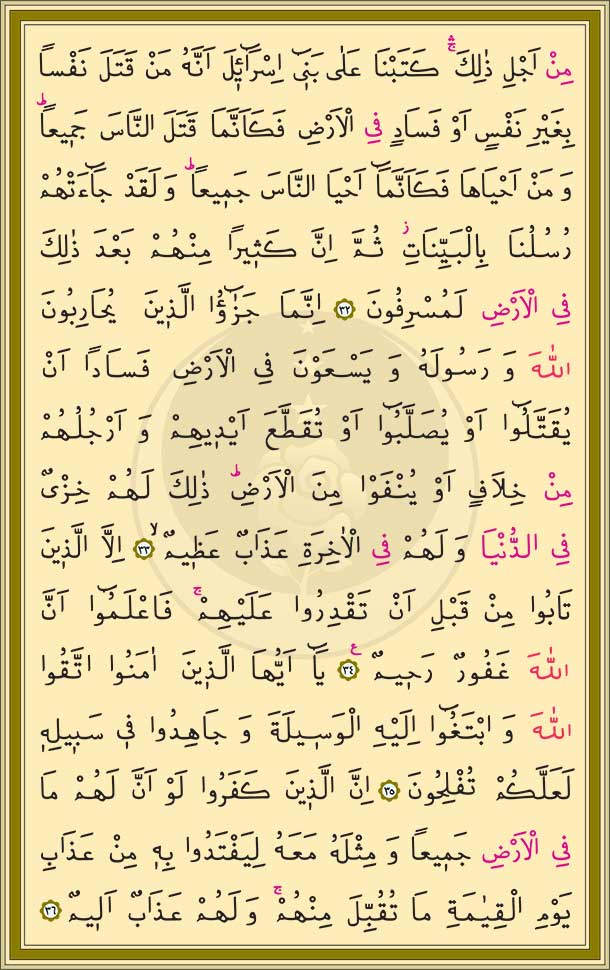 مِنْ اَجْلِ ذٰلِكَۚۛ كَتَبْنَا عَلٰى بَنٖٓي اِسْرَٓائٖلَ اَنَّهُ مَنْ قَتَلَ نَفْساً
بِغَيْرِ نَفْسٍ اَوْ فَسَادٍ فِي الْاَرْضِ فَكَاَنَّمَا قَتَلَ النَّاسَ جَمٖيعاًؕ
وَ مَنْ اَحْيَاهَا فَكَاَنَّمَٓا اَحْيَا النَّاسَ جَمٖيعاًؕ وَ لَقَدْ جَٓاءَتْهُمْ
رُسُلُنَا بِالْبَيِّنَاتِؗ ثُمَّ اِنَّ كَثٖيرًا مِنْهُمْ بَعْدَ ذٰلِكَ
فِي الْاَرْضِ لَمُسْرِفُونَ ٣٢ اِنَّمَا جَزٰٓؤُا الَّذٖينَ يُحَارِبُونَ
اللّٰهَ وَ رَسُولَهُ وَ يَسْعَوْنَ فِي الْاَرْضِ فَسَادًا اَنْ
يُقَتَّلُٓوا اَوْ يُصَلَّبُٓوا اَوْ تُقَطَّعَ اَيْدٖيهِمْ وَ اَرْجُلُهُمْ
مِنْ خِلَافٍ اَوْ يُنْفَوْا مِنَ الْاَرْضِؕ ذٰلِكَ لَهُمْ خِزْىٌ
فِي الدُّنْيَا وَ لَهُمْ فِي الْاٰخِرَةِ عَذَابٌ عَظٖيمٌۙ ٣٣ اِلَّا الَّذٖينَ
تَابُوا مِنْ قَبْلِ اَنْ تَقْدِرُوا عَلَيْهِمْۚ فَاعْلَمُٓوا اَنَّ
اللّٰهَ غَفُورٌ رَحٖيمٌ ٣٤ ع يَٓا اَيُّهَا الَّذٖينَ اٰمَنُوا اتَّقُوا
اللّٰهَ وَ ابْتَغُٓوا اِلَيْهِ الْوَسٖيلَةَ وَ جَاهِدُوا فٖي سَبٖيلِهٖ
لَعَلَّكُمْ تُفْلِحُونَ ٣٥ اِنَّ الَّذٖينَ كَفَرُوا لَوْ اَنَّ لَهُمْ مَا
فِي الْاَرْضِ جَمٖيعاً وَ مِثْلَهُ مَعَهُ لِيَفْتَدُوا بِهٖ مِنْ عَذَابِ
يَوْمِ الْقِيٰمَةِ مَا تُقُبِّلَ مِنْهُمْۚ وَ لَهُمْ عَذَابٌ اَلٖيمٌ ٣٦